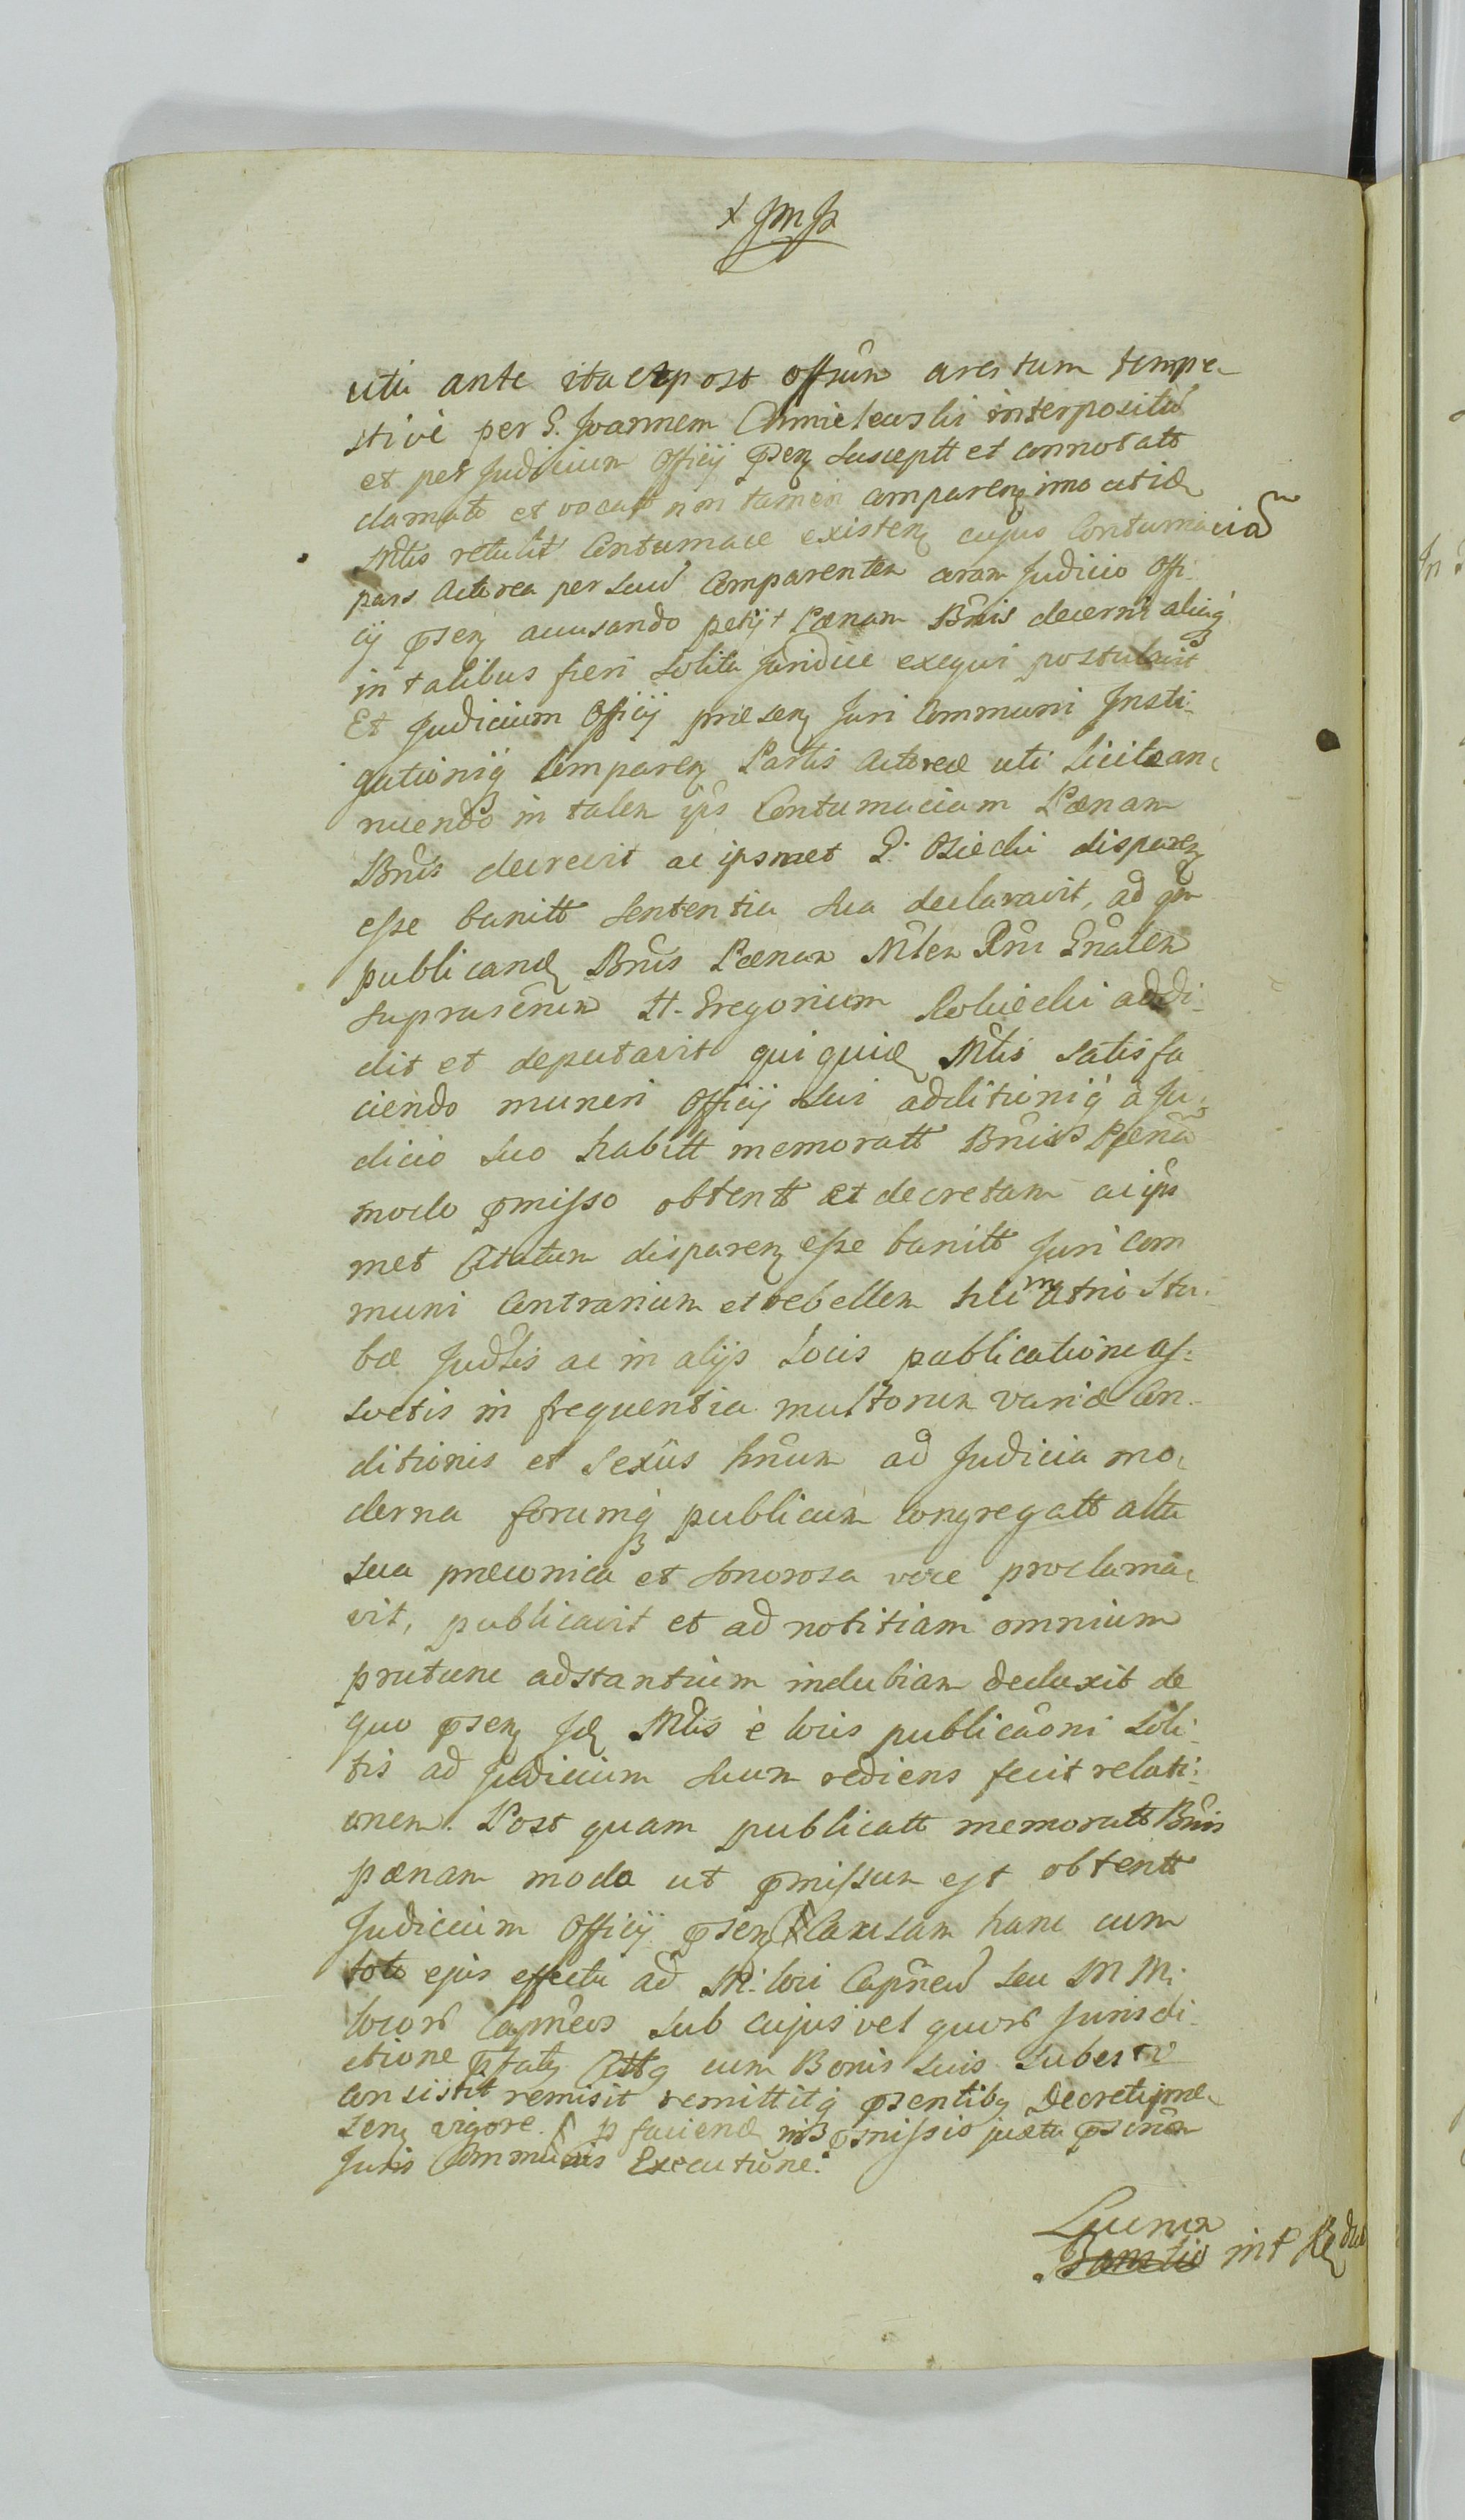 uti ante ita et post offrum arestum tempe
stive per G. Joannem Chmielewski interpositu
et per Judicium Officij psen susceptt et connotatt
clamatt et vocatt non tamen comparen imo uti id
Mtlis retulit Contumace existen cujus Contumaciam
pars Actorea per suu Comparentem coram Judicio Offi
cij psen accusando petijt Pænam Bnis decerni aliaq
in talibus fieri solita Juridice exequi postulavit
Et Judicium Officij præsen Juri Communi Insti
gationiq Comparen Partis Actoreæ uti licitæ an
nuendo in talem ips Contumaciam Pænam
Bnis decrevit ac ipsmet G. Osiecki disparen
esse banitt sententia sua declaravit, ad qm
publicand Bnis Pænam Mtlem Rni Gnalem
suprascrium H. Gregorium Sobiecki addi
dit et deputavit qui quid Mtlis satisfa
ciendo muneri Officij sui additioniq a Ju
dicio suo habitt memoratt Bnis Pænam
modo pmisso obtentt et decretam ac ips
met Citatum disparen esse banitt Juri com
muni Contrarium et rebellem in atrio Stu
bæ Judlis ac in alijs locis publicationi as
suetis in frequentia multorum variæ Con
ditionis et sexus hnum ad Judicia mo
derna forumq publicum congregatt alta
sua præconica et sonorosa voce proclama
vit, publicavit et ad notitiam omnium
protunc adstantium indubiam deduxit de
quo psen Id Mtlis e locis publicaoni soli
tis ad Judicium suum rediens fecit relati
onem. Post quam publicatt memoratt Bnis
pænam modo ut pmissum est obtentt
Judicium Officij psen Causam hanc cum
toto ejus effectu ad M. loci Capneu seu M M.
locor Capneos sub cujus vel quor Jurisdi
ctione cum Bonis suis subest v
Consistit remisit remittitq psentibq Decreti præ
sen vigore. p faciend in pmissis juxta pscrum
Juris Communis Executione.